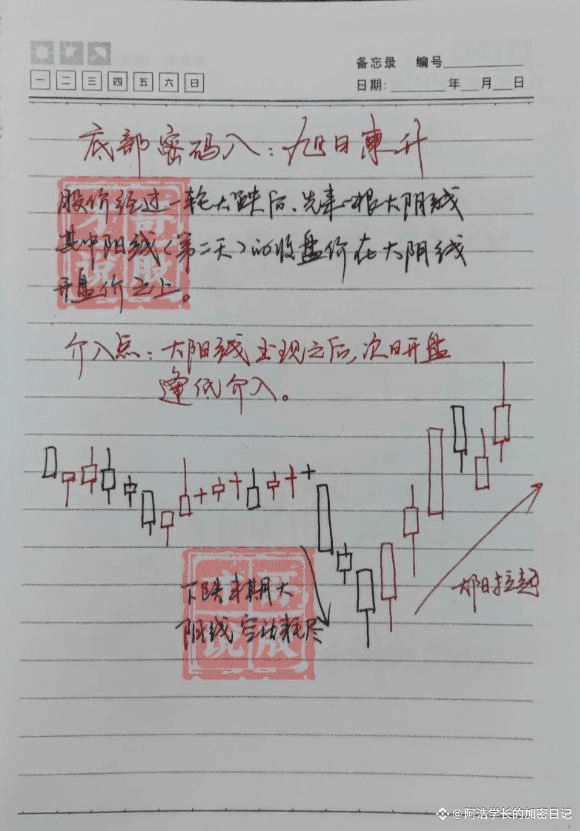 备忘录 编号
一 二 三 四 五 六 日
日期: 年 月 日
底部密码八：旭日東升
股价经过一轮大跌后、先来一根大阴线
其中阳线（第二天）的收盘价在大阴线
开盘价之上。
介入点：大阳线出现之后，次日开盘
逢低介入。
下跌末期大
阴线 空动耗尽
拉起
@阿浩学长的加密日记